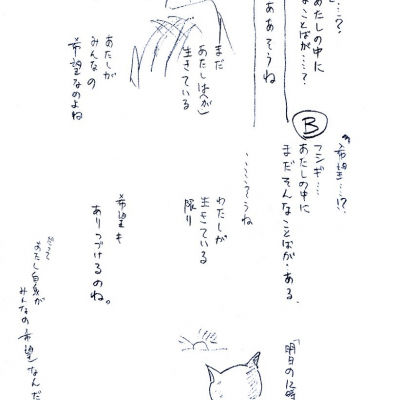 …?
あたしの中に
なことばが…?
ああそうね
まだ
あたしは(が)
生きている
あたしが
みんなの
希望なのよね
B
"希望…!?
フシギ…
あたしの中に
まだそんなことばが・ある.
……そうね
わたしが
生きている
限り
希望も
ありつづけるのね。
だって
あたし自身が
みんなの「希望」なんだ
「明日の12時